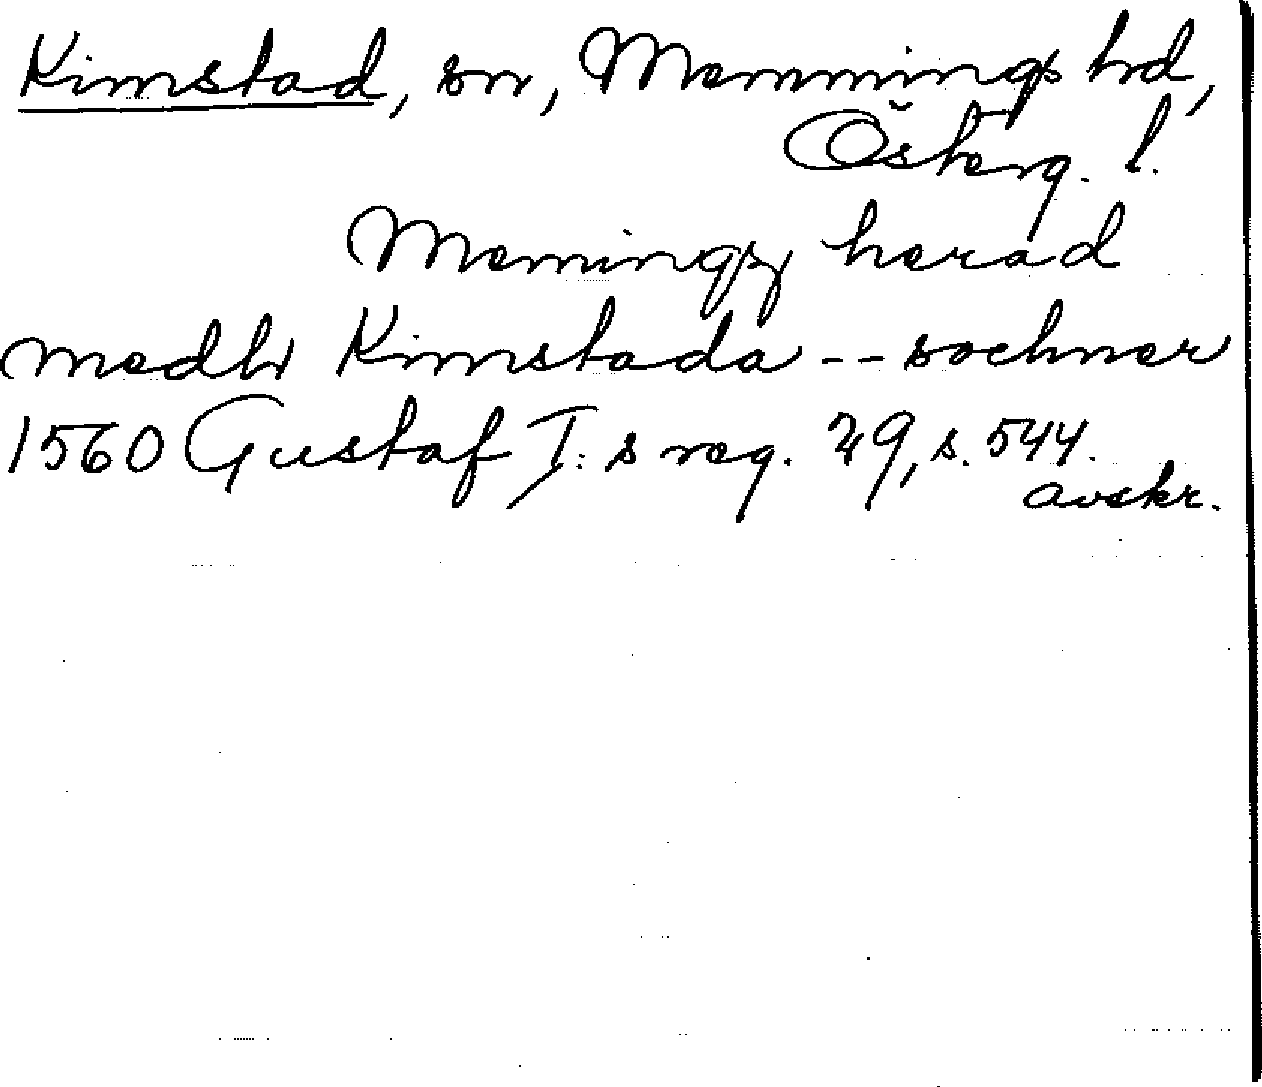 Kimstad, sn, Memmings hd,
Österg. l.
Memingz herad
medh Kimstada -- sochner
1560 Gustaf I:s reg. 29, s. 544.
avskr.